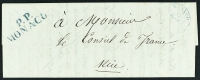 P.P.
MONACO
à Monsieur
le Consul de France
Nice